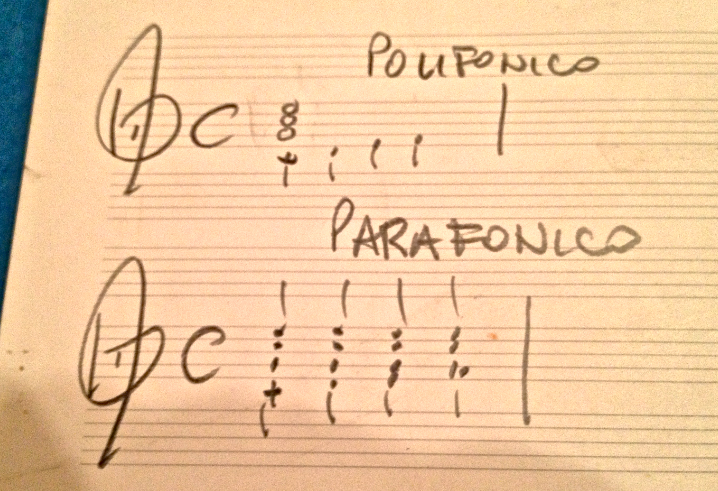 POLIFONICO
C
PARAFONICO
C